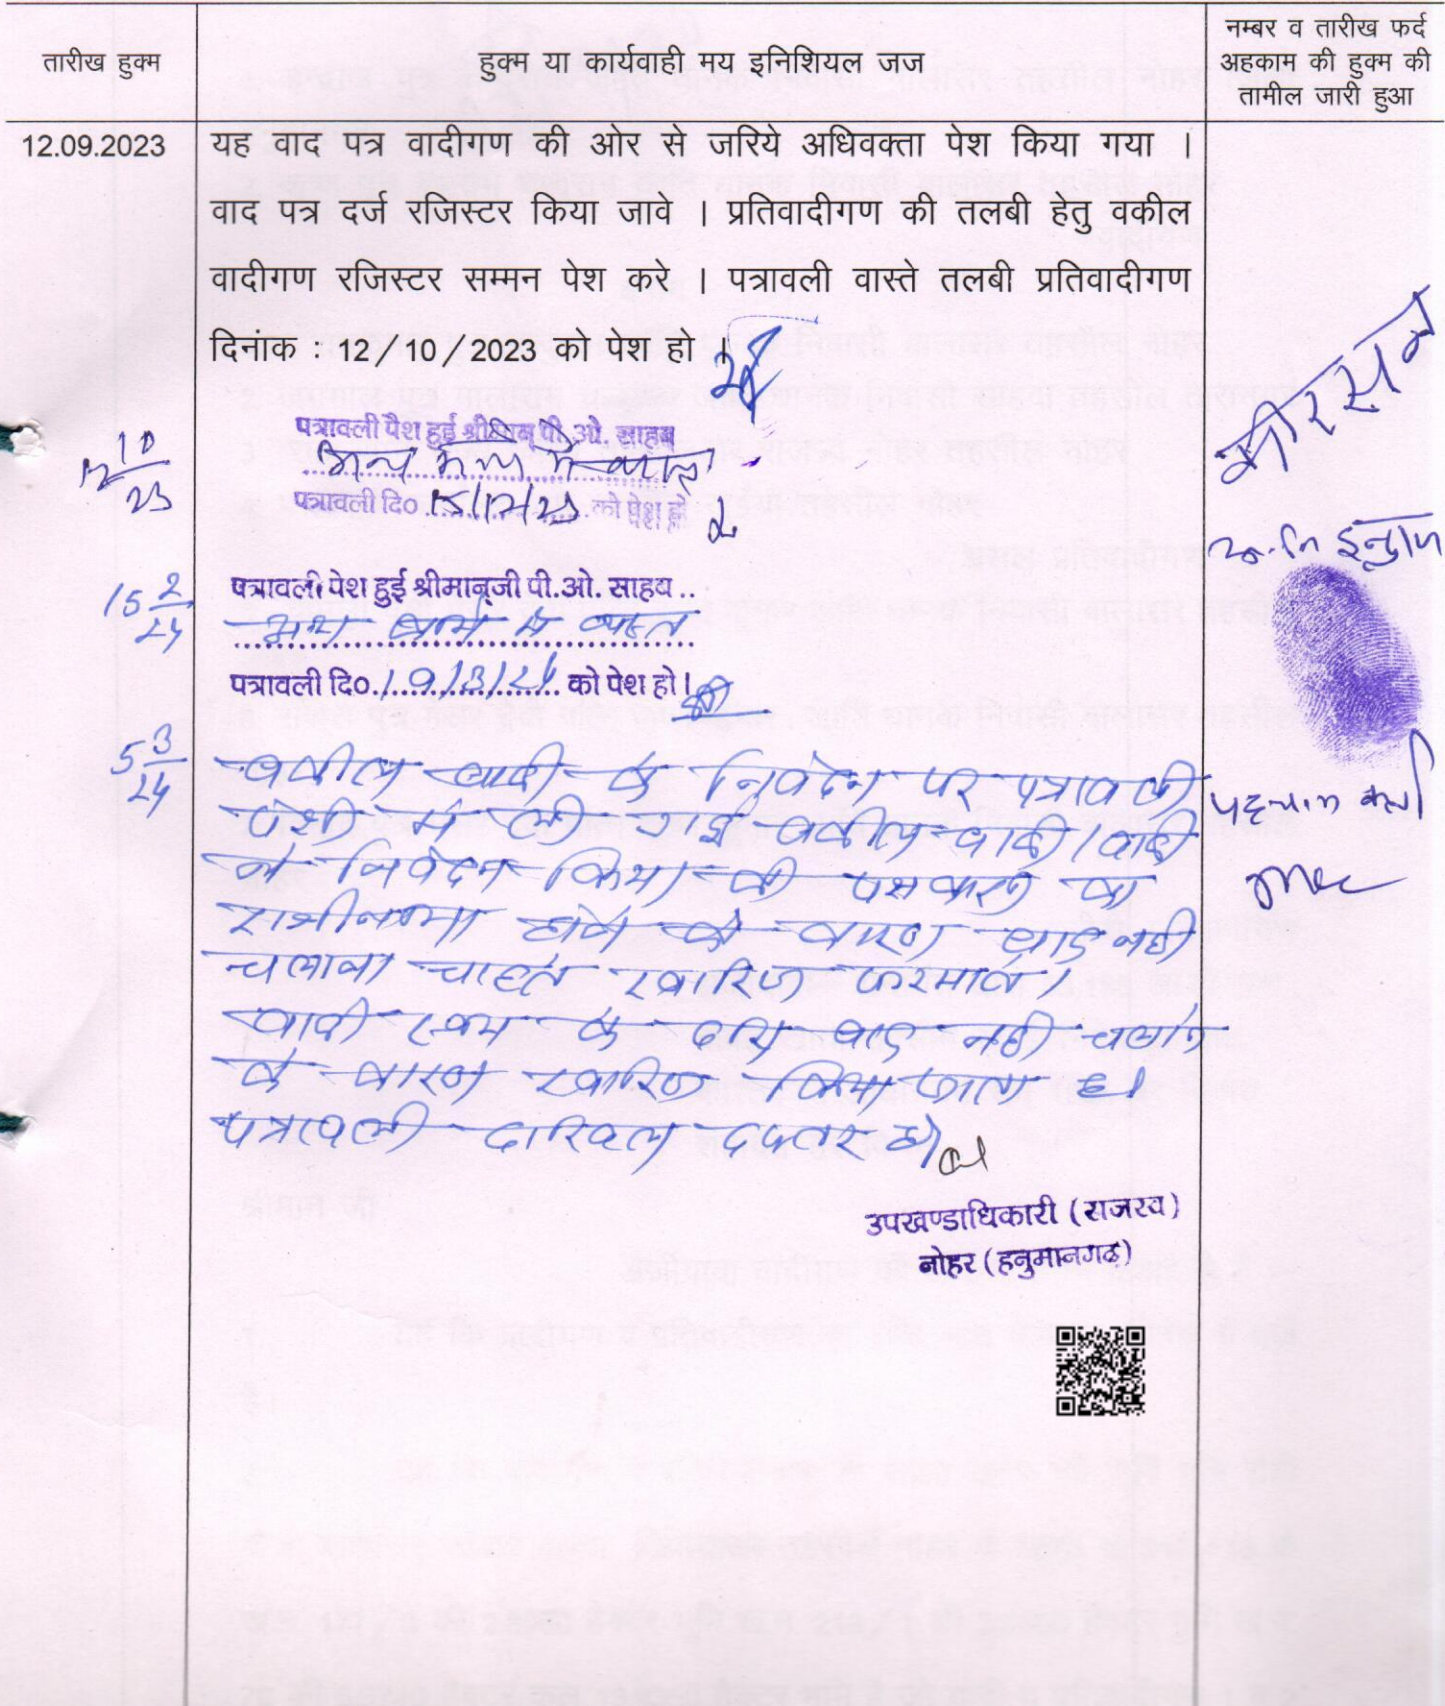 तारीख हुक्म
हुक्म या कार्यवाही मय इनिशियल जज
नम्बर व तारीख फर्द
अहकाम की हुक्म की
तामील जारी हुआ
12.09.2023
यह वाद पत्र वादीगण की ओर से जरिये अधिवक्ता पेश किया गया ।
वाद पत्र दर्ज रजिस्टर किया जावे । प्रतिवादीगण की तलबी हेतु वकील
वादीगण रजिस्टर सम्मन पेश करे । पत्रावली वास्ते तलबी प्रतिवादीगण
दिनांक : 12/10/2023 को पेश हो ।
12 10/23
पत्रावली पेश हुई श्रीमान् पी.ओ. साहब
अन्य कार्य में व्यस्त
पत्रावली दि० 15/12/23 को पेश हो
15 2/24
पत्रावली पेश हुई श्रीमानजी पी.ओ. साहब ..
अन्य कार्य में व्यस्त
पत्रावली दि०. 19/3/24 को पेश हो।
5 3/24
वकील वादी के निवेदन पर पत्रावली
पेशी में ली गई वकील वादी / वादी
ने निवेदन किया की पक्षकारों का
राजीनामा होने के कारण वाद नहीं
चलाना चाहते खारिज फरमावें।
वादी स्वयं के द्वारा वाद नहीं चलाने
के कारण खारिज किया जाता है।
पत्रावली दाखिल दफ्तर हो
उपखण्डाधिकारी (राजस्व)
नोहर (हनुमानगढ़)
इन्द्राज
पहचान कर्ता